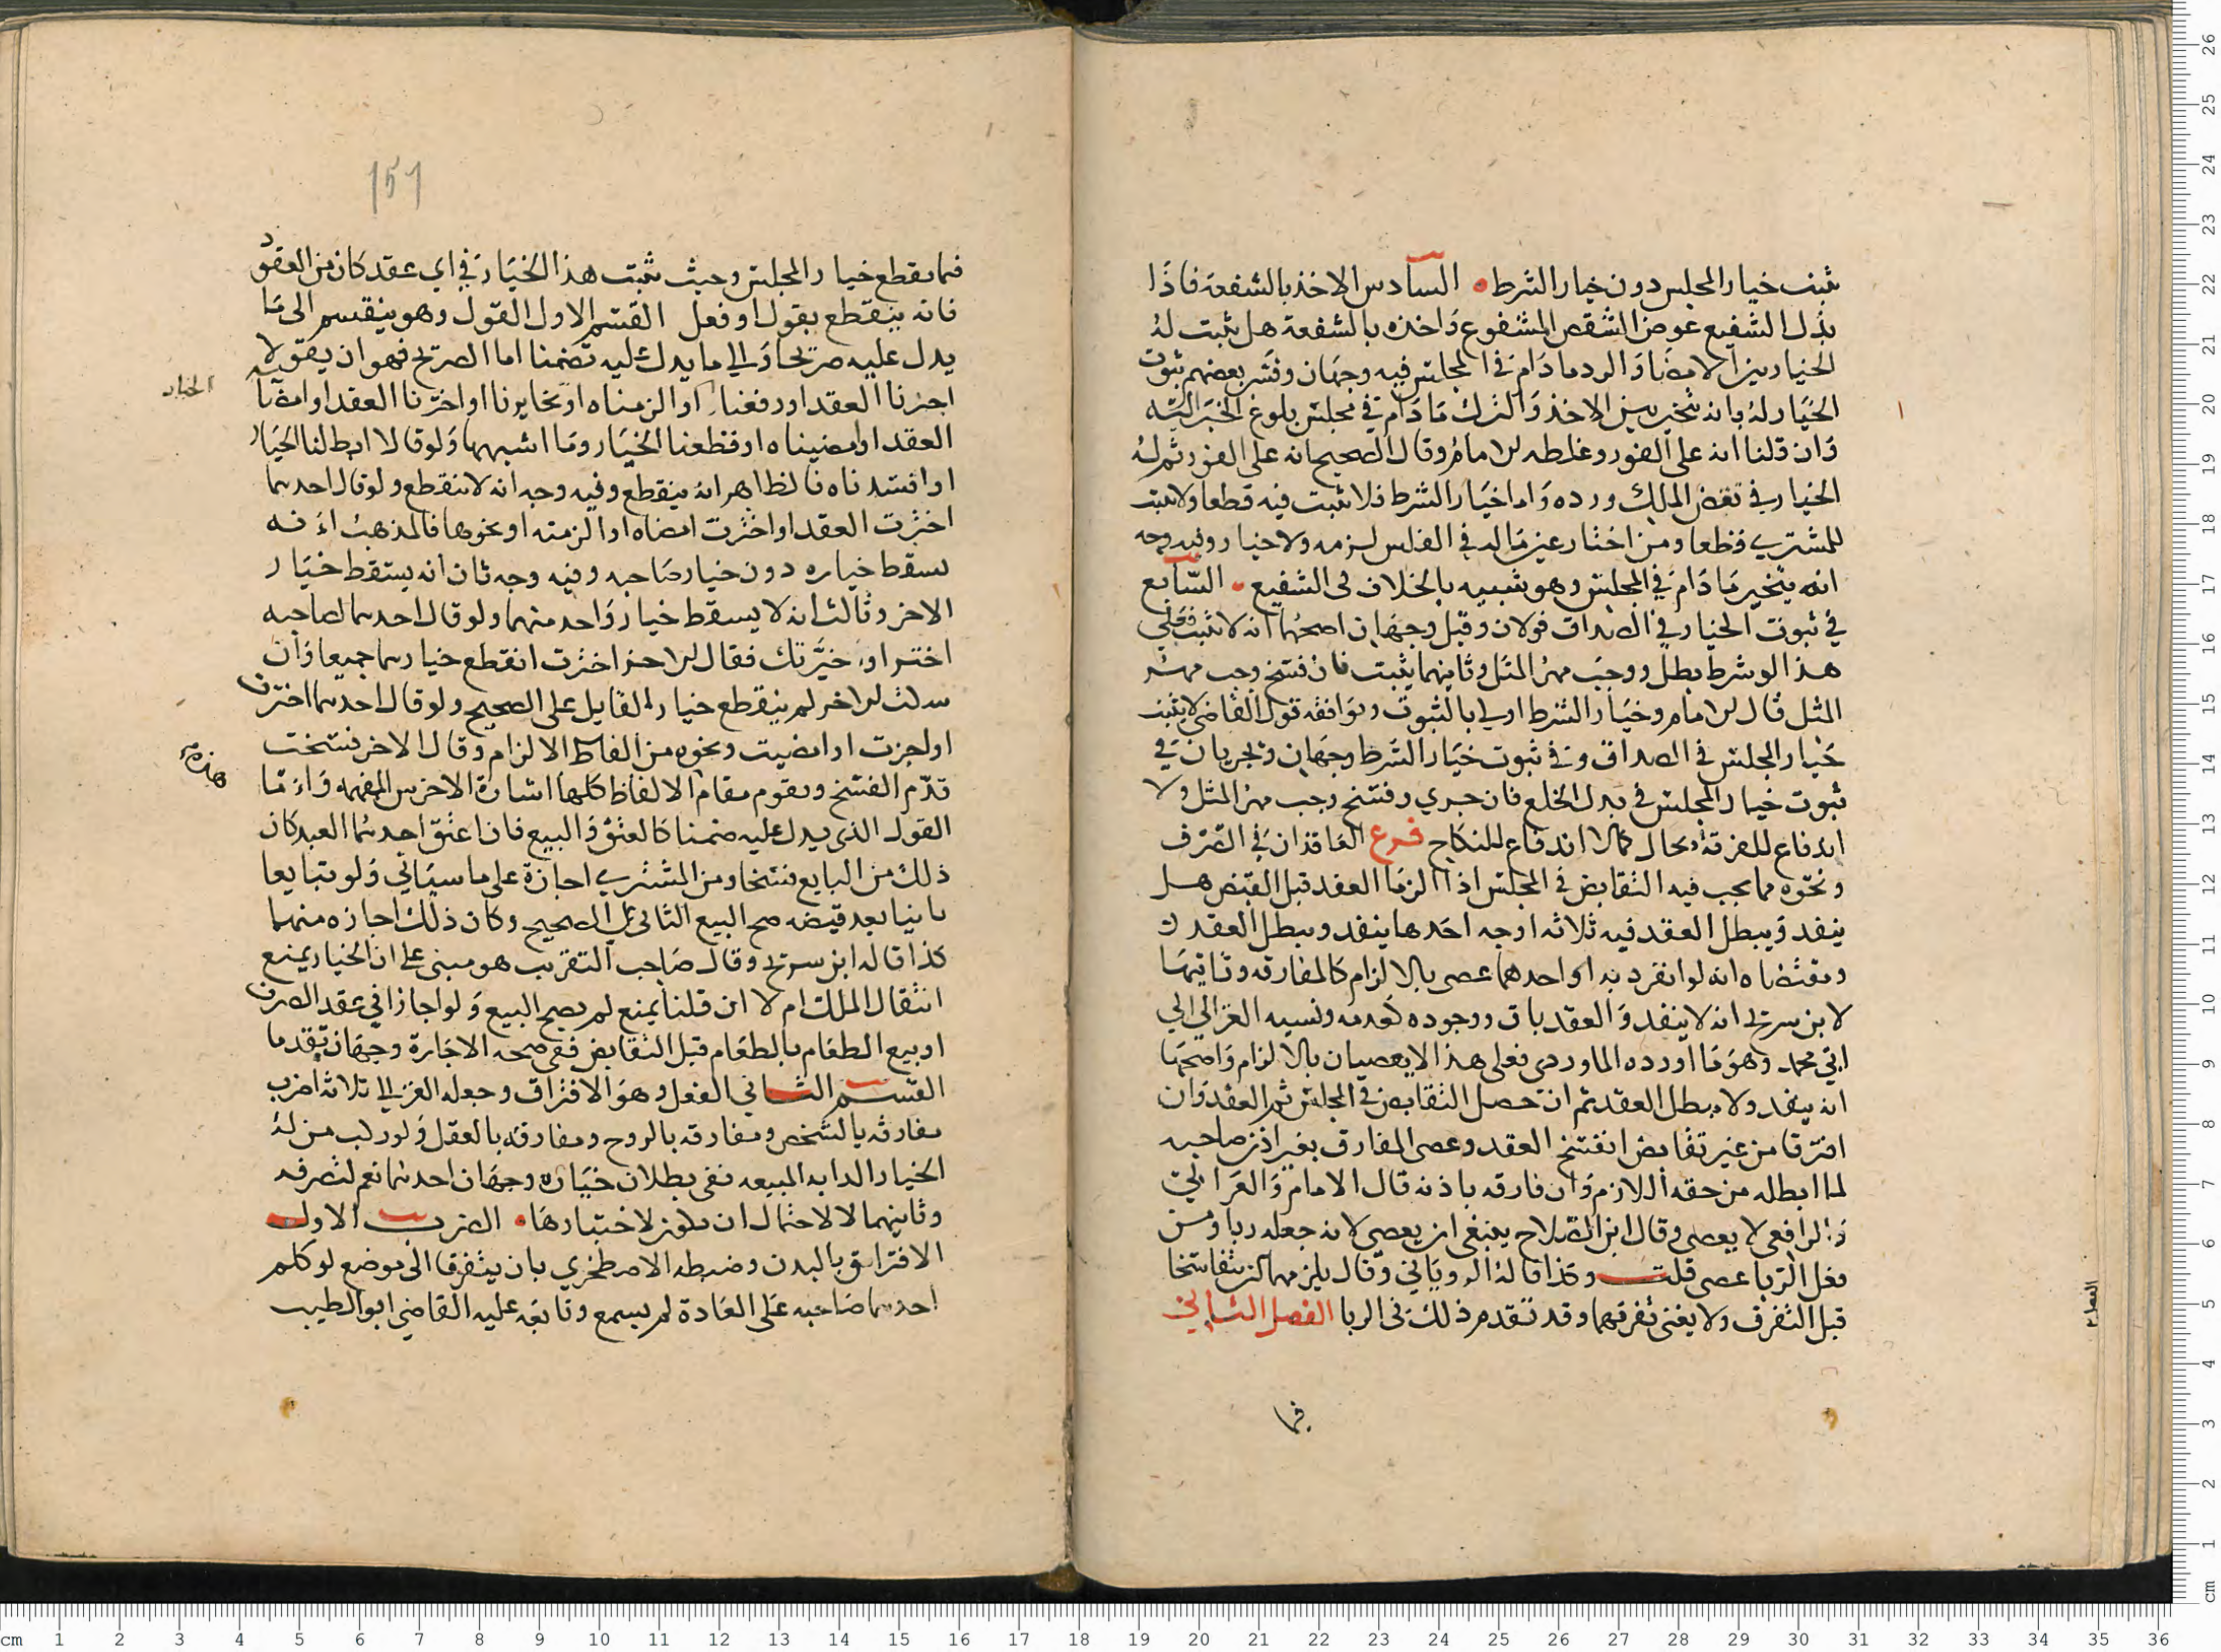 ثبت خيار المجلس دون خيار الشرط السادس الاخذ بالشفعة فاذا
بذل الشفيع عوض الشقص المشفوع واخذه بالشفعة هل يثبت له
الخيار بين الامضا والرد ما دام في المجلس فيه وجهان وفسر بعضهم ثبوت
الخيار له بانه يتخير بين الاخذ والترك ما دام في مجلس بلوغ الخبر اليه
وان قلنا انه على الفور وغلطه الامام وقال الصحيح انه على الفور ثم له
الخيار في نقض الملك ورده واما خيار الشرط فلا يثبت فيه قطعا ولا يثبت
للمشتري قطعا ومن اختار عين ماله في الفلس لزمه ولا خيار وفيه وجه
انه يتخير ما دام في المجلس وهو شبيه بالخلاف في الشفيع السابع
في ثبوت الخيار في الصداق قولان وقيل وجهان اصحهما انه لا يثبت فعلى
هذا لو شرط بطل ووجب مهر المثل وثانيهما يثبت فان فسخ وجب مهر
المثل قال الامام وخيار الشرط اولى بالثبوت ووافقه قول القاضي لا يثبت
خيار المجلس في الصداق وفي ثبوت خيار الشرط وجهان ويجريان في
ثبوت خيار المجلس في بدل الخلع فان جرى وفسخ وجب مهر المثل ولا
اندفاع للفرقة بحال كما لا اندفاع للنكاح فرع العاقدان في الصرف
ونحوه مما يجب فيه التقابض في المجلس اذا الزما العقد قبل القبض هل
ينفد ويبطل العقد فيه ثلاثه اوجه احدها ينفد ويبطل العقد
ومقتضاه انه لو انفرد به احدهما عصى بالالزام كالمفارقه وثانيها
لابن سريج انه لا ينفد والعقد باق ووجوده كعدمه ونسبه الغزالي الى
ابي محمد وهو ما اورده الماوردي فعلى هذا لا يعصيان بالالزام واصحها
انه ينفد ولا يبطل العقد ثم ان حصل التقابض في المجلس ثم العقد وان
افترقا من غير تقابض انفسخ العقد وعصى المفارق بغير اذن صاحبه
لما ابطله من حقه اللازم وان فارقه باذنه قال الامام والغزالي
والرافعي لا يعصي وقال ابن الصلاح ينبغي ان يعصي لانه جعله ربا ومن
فعل الربا عصى قلت وكذا قاله الروياني وقال يلزمهما ان يتفاسخا
قبل التفرق ولا يغني تفرقهما وقد تقدم ذلك في الربا الفصل الثاني
فيما
فيما يقطع خيار المجلس وحيث ثبت هذا الخيار في اي عقد كان من العقود
فانه ينقطع بقول او فعل القسم الاول القول وهو ينقسم الى ما
يدل عليه صريحا والى ما يدل عليه تضمنا اما الصريح فهو ان يقولا
اجزنا العقد او رفعنا او الزمناه او تخايرنا او اخترنا العقد او امضا
الخيار
العقد او امضيناه او قطعنا الخيار وما اشبهها ولو قالا ابطلنا الخيار
او افسدناه فالظاهر انه ينقطع وفيه وجه انه لا ينقطع ولو قال احدهما
اخترت العقد او اخترت امضاه او الزمته او نحوها فالمذهب انه
يسقط خياره دون خيار صاحبه وفيه وجه ثان انه يسقط خيار
الاخر وثالث انه لا يسقط خيار واحد منهما ولو قال احدهما لصاحبه
اختر او خيرتك فقال الاخر اخترت انقطع خيارهما جميعا وان
سكت الاخر لم ينقطع خياره القايل على الصحيح ولو قال احدهما اخترت
او اجزت او امضيت ونحوه من الفاظ الالزام وقال الاخر فسخت
قدم الفسخ ويقوم مقام الالفاظ كلها اشارة الاخرس المفهمه واما
القول الذي يدل عليه ضمنا كالعتق والبيع فان اعتق احدهما العبد كان
ذلك من البايع فسخا ومن المشتري اجازة على ما سياتي ولو تبايعا
ثانيا بعد قبضه صح البيع الثاني على الصحيح وكان ذلك اجازه منهما
كذا قاله ابن سريج وقال صاحب التقريب هو مبني على ان الخيار يمنع
انتقال الملك ام لا ان قلنا يمنع لم يصح البيع ولو اجازا في عقد الصرف
او بيع الطعام بالطعام قبل التقابض ففي صحه الاجازة وجهان تقدما
القسم الثاني الفعل وهو الافتراق وجعله الغزالي ثلاثه اضرب
مفارقه بالشخص ومفارقه بالروح ومفارقه بالعقل ولو ركب من له
الخيار الدابه المبيعه ففي بطلان خياره وجهان احدهما نعم لتصرفه
وثانيهما لا لاحتمال ان يكون لاختبارها الضرب الاول
الافتراق بالبدن وضبطه الاصطخري بان يتفرقا الى موضع لو كلم
احدهما صاحبه على العادة لم يسمع وتابعه عليه القاضي ابو الطيب